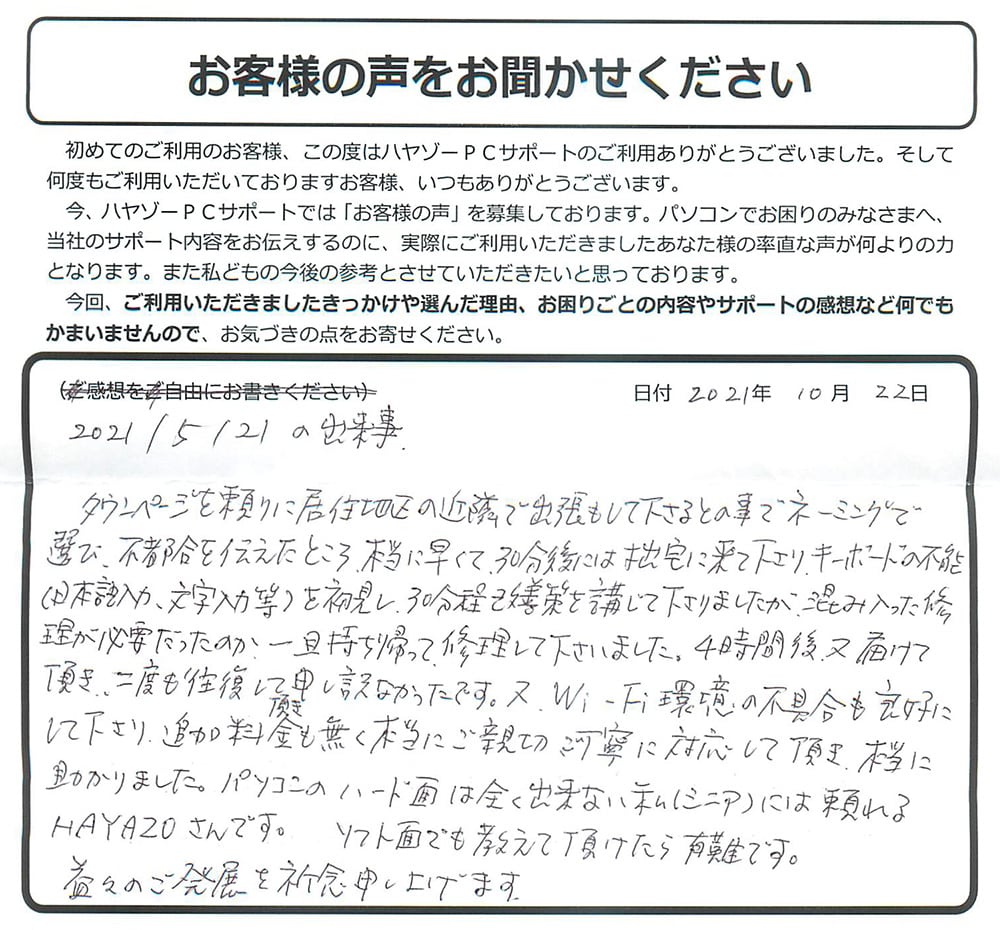 お客様の声をお聞かせください
初めてのご利用のお客様、この度はハヤゾーＰＣサポートのご利用ありがとうございました。そして
何度もご利用いただいておりますお客様、いつもありがとうございます。
今、ハヤゾーＰＣサポートでは「お客様の声」を募集しております。パソコンでお困りのみなさまへ、
当社のサポート内容をお伝えするのに、実際にご利用いただきましたあなた様の率直な声が何よりの力
となります。また私どもの今後の参考とさせていただきたいと思っております。
今回、ご利用いただきましたきっかけや選んだ理由、お困りごとの内容やサポートの感想など何でも
かまいませんので、お気づきの点をお寄せください。
(ご感想をご自由にお書きください) 日付 2021年 10月 22日
2021/5/21 の出来事.
タウンページを頼りに居住地区の近隣で出張もして下さるとの事でネーミングで
選び、不都合を伝えたところ、本当に早くて、30分後には拙宅に来て下さり、キーボードの不能
(日本語入力、文字入力等)を初見し、30分程 善策を講じて下さりましたが、混み入った修
理が必要だったのか、一旦持ち帰って、修理して下さいました。4時間後、又届けて
頂き、二度も往復して頂き申し訳なかったです。又、Wi-Fi環境の不具合も良好に
して下さり、追加料金も無く本当にご親切 丁寧に対応して頂き、本当に
助かりました。パソコンのハード面は全く出来ない私(シニア)には頼れる
HAYAZOさんです。 ソフト面でも教えて頂けたら有難です。
益々のご発展を祈念申し上げます.